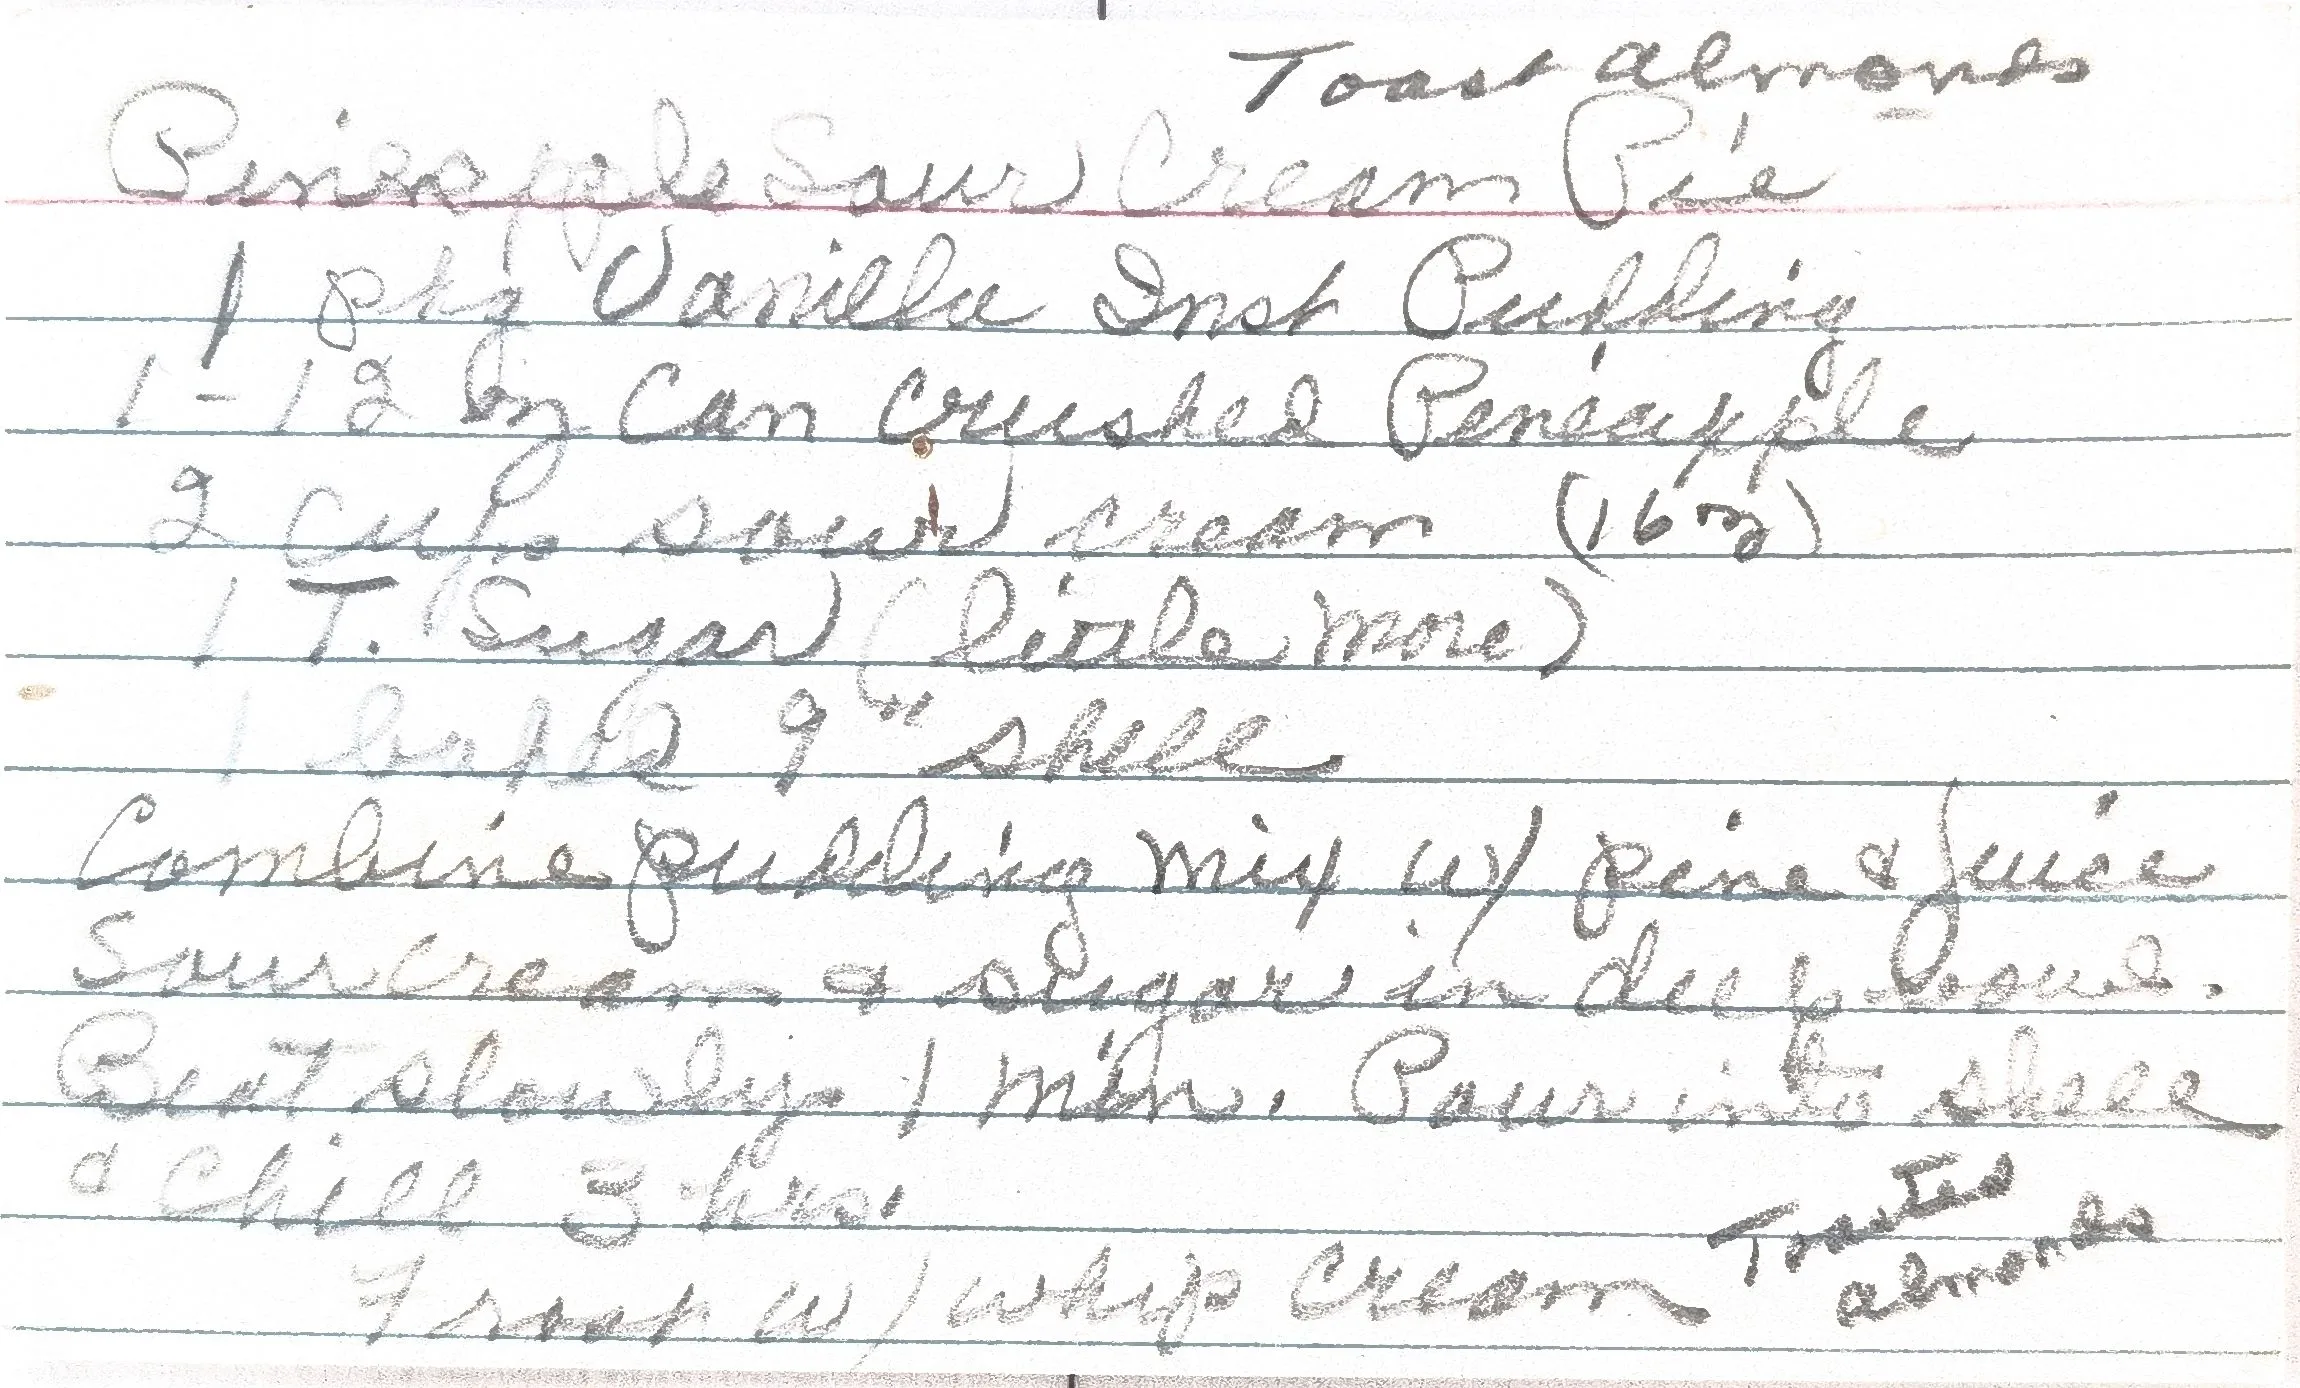 Toast almonds
Pineapple Sour Cream Pie
1 pkg Vanilla Inst Pudding
1-12 oz Can Crushed Pineapple
2 cups sour cream (16 oz)
1 T. Sugar (little more)
1 baked 9" shell
Combine pudding mix w/ pine & juice
Sour cream & sugar in deep bowl.
Beat slowly 1 min. Pour into shell
& chill 3 hrs.
Toasted
almonds
w/ whip cream